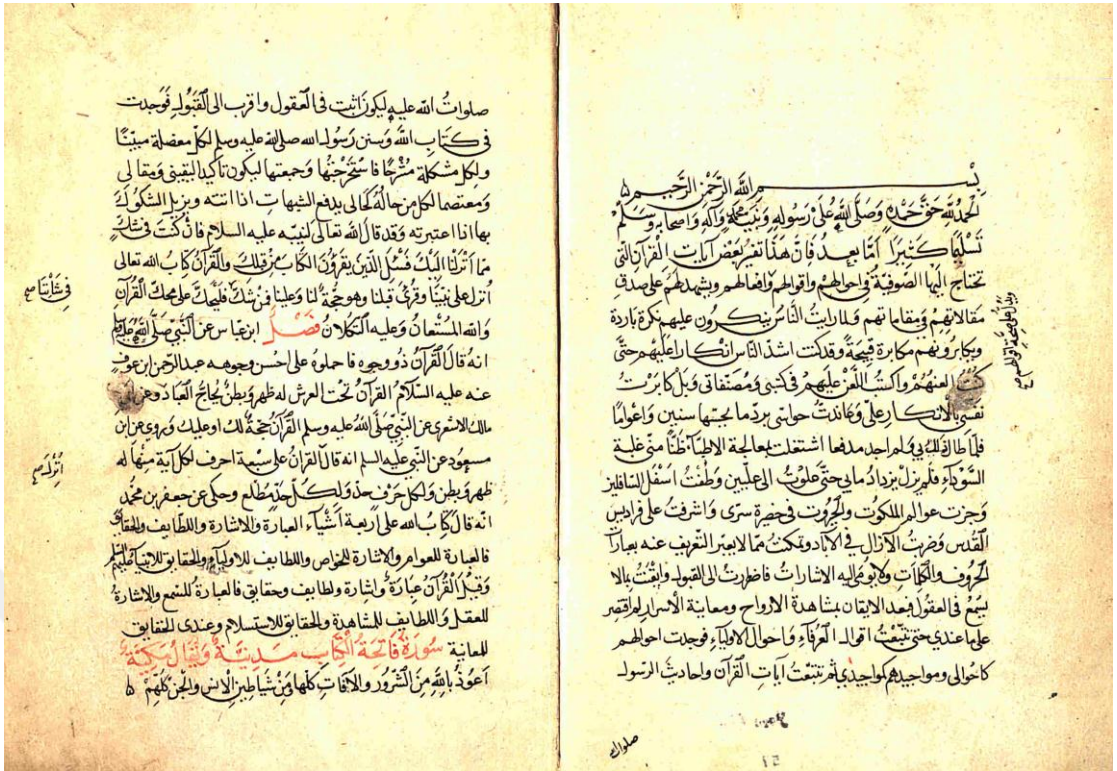 بسم الله الرحمن الرحيم
الحمد لله حق حمده وصلى الله على رسوله ونبيه محمد وآله واصحابه وسلم
تسليما كثيرا اما بعد فان هذا تفسير بعض آيات القرآن التي
تحتاج اليها الصوفية في احوالهم واقوالهم وافعالهم ويشهد لهم على صدق
مقالاتهم ومقاماتهم ولما رايت الناس ينكرون عليهم نكرة باردة
ويكابرونهم مكابرة قبيحة وقد كنت اشد الناس انكارا عليهم حتى
كنت العنهم واكتب اللعن عليهم في كتبي ومصنفاتي وبل كابرت
نفسي بالانكار على حوابتي بردما سنين واعواما
فلما طال ولم اجد مدفعا اشتغلت بمعالجة الاطباء ظنا مني غلبة
السوداء فلم يزل يزداد مابي حتى علوت الى عليين وطفت اسفل السافلين
وجزت عوالم الملكوت والجبروت في سرى واشرفت على فراديس
القدس وضربت الآزال في الآباد وتمكنت مما لا يعبر التعريف عنه بعبارات
الحروف والكلمات ولا يومى اليه الاشارات فاضطررت الى القبول وايقنت بما لا
يسع في العقول فبعد الايقان بمشاهدة الارواح ومعاينة الاسرار لم اقتصر
على ما عندي حتى تتبعت اقوال العرفاء واحوال الاولياء فوجدت احوالهم
كاحوالي ومواجيدهم كمواجيدي ثم تتبعت آيات القرآن واحاديث الرسول
صلوات
صلوات الله عليه ليكون اثبت في العقول واقرب الى القبول فوجدت
في كتاب الله وسنن رسول الله صلى الله عليه وسلم لكل معضلة مبينا
ولكل مشكلة مشرحا فاستخرجتها وجمعتها ليكون تأكيدا ليقيني ومقالي
ومعتصما لكل من حاله كحالي يدفع الشبهات اذا اتته ويزيل الشكوك
بها اذا اعتبرته وقد قال الله تعالى لنبيه عليه السلام فان كنت في شك
مما انزلنا اليك فسئل الذين يقرؤن الكتاب من قبلك والقرآن كتاب الله تعالى
انزل على نبينا وقرئ قبلنا وهو حجة لنا وعلينا فمن شك فليحك على محك القرآن
والله المستعان وعليه التكلان فصل ابن عباس عن النبي صلى الله عليه وسلم
انه قال القرآن ذو وجوه فاحملوه على احسن وجوهه عبد الرحمن ابن عوف
عنه عليه السلام القرآن تحت العرش له ظهر وبطن يحاج العباد وعن
مالك الاشعري عن النبي صلى الله عليه وسلم القرآن حجة لك او عليك وروي عن ابن
مسعود عن النبي عليه السلم انه قال القرآن على سبعة احرف لكل آية منها له
ظهر وبطن ولكل حرف حد ولكل حد مطلع وحكى عن جعفر بن محمد
انه قال كتاب الله على اربعة أشياء العبارة والاشارة واللطايف والحقايق
فالعبارة للعوام والاشارة للخواص واللطايف للاولياء والحقايق للانبياء عليهم السلم
وقيل القرآن عبارة واشارة ولطايف وحقايق فالعبارة للسمع والاشارة
للعقل واللطايف للمشاهدة والحقايق للاستسلام وعندي الحقايق
للمعاينة سورة فاتحة الكتاب مدنية ويقال مكية
اعوذ بالله من الشرور والآفات كلها ومن شياطين الانس والجن كلهم